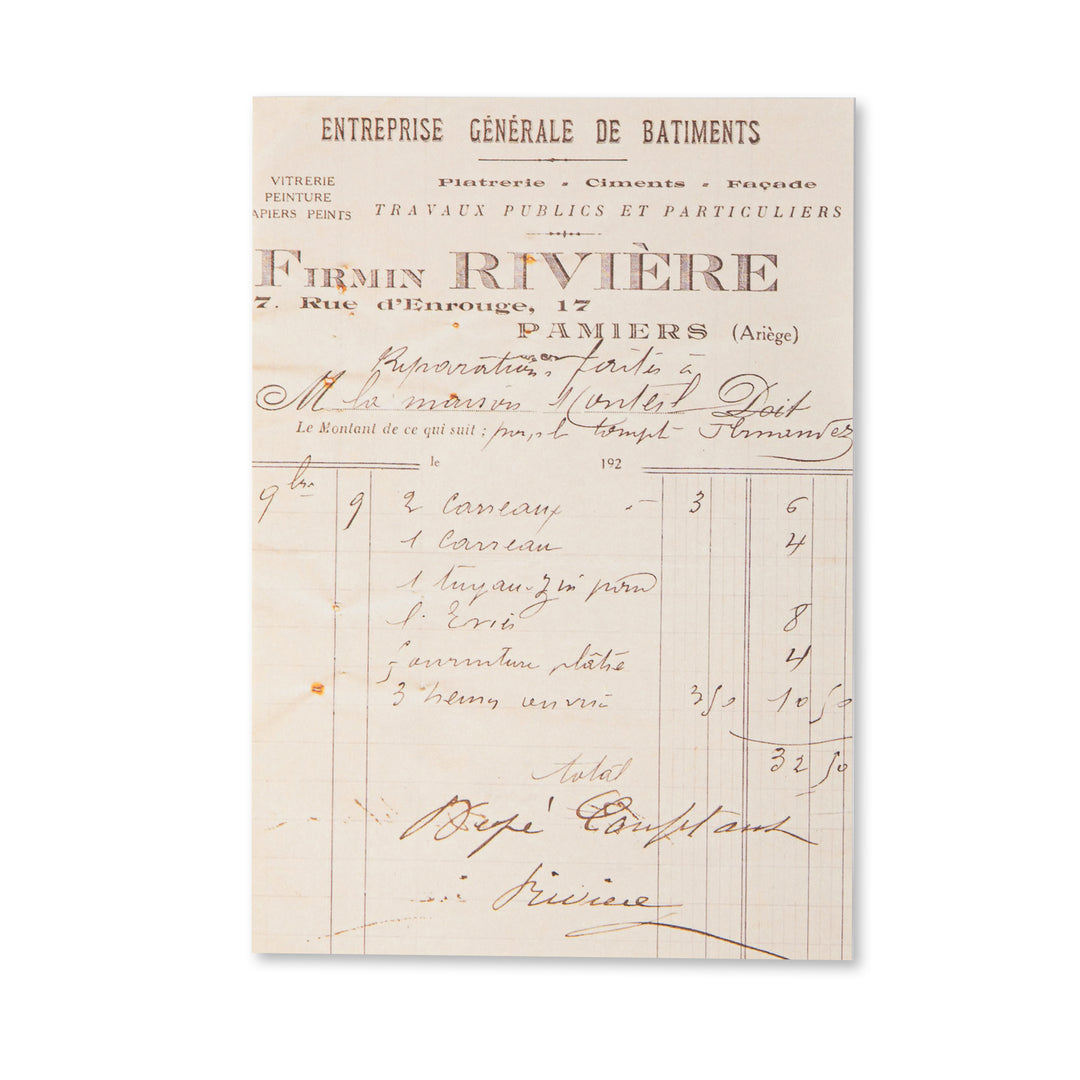 ENTREPRISE GÉNÉRALE DE BATIMENTS
VITRERIE
PEINTURE
APIERS PEINTS
Platrerie - Ciments - Façade
TRAVAUX PUBLICS ET PARTICULIERS
FIRMIN RIVIÈRE
7. Rue d'Enrouge, 17
PAMIERS (Ariège)
Réparations faites à
M la maison Monteil Doit
Le Montant de ce qui suit : compte Fernandez
le 192
9bre 9 2 Carreaux - 3 6
1 Carreau 4
1 tuyau zin pour
l'Evié 8
fourniture plâtre 4
3 heures ouvrié 3 50 10 50
total 32 50
Comptant
Riviere